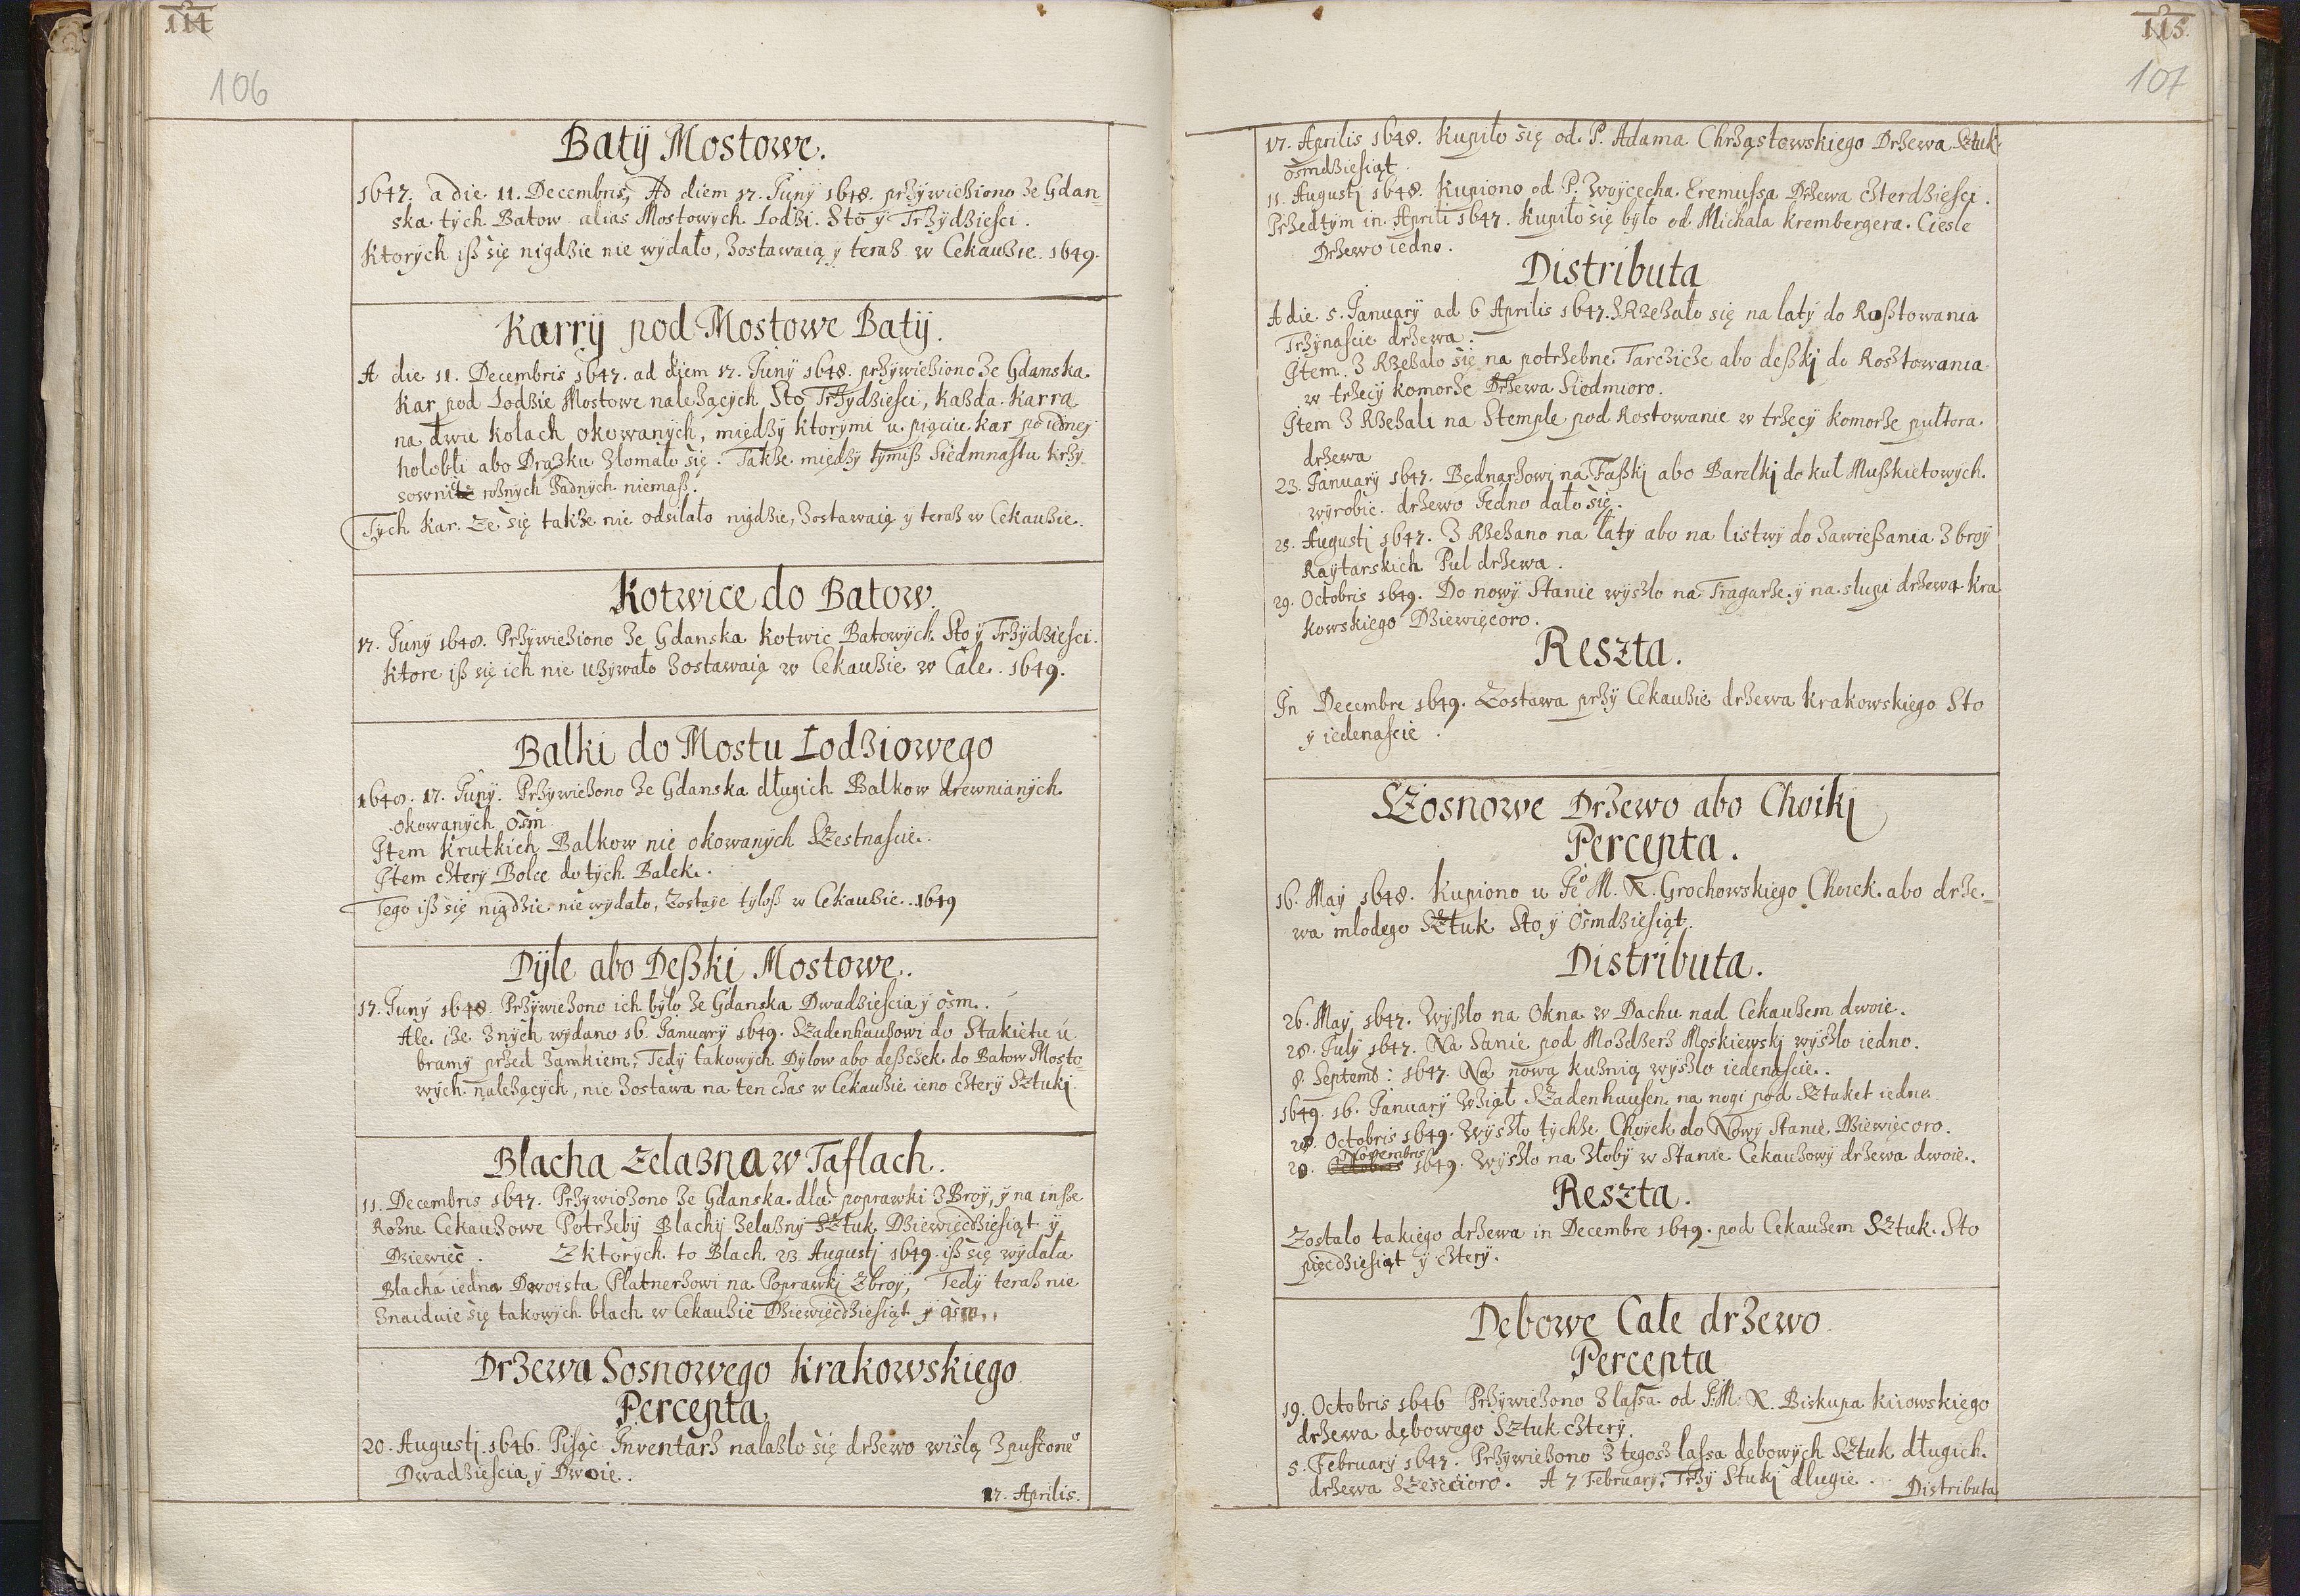 114
106
Batÿ Mostowe.
1647. a die 11. Decembris, Ad diem 17. Junÿ 1648. prżÿwieżiono że Gdan
ska tÿch Batow alias Mostowÿch Lodżi. Sto ÿ Trżÿdżiesci.
Ktorÿch iß się nigdżie nie wÿdało, żostawaią ÿ teraż w Cekaużie. 1649.
Karrÿ pod Mostowe Batÿ.
A die 11. Decembris 1647. ad diem 17. Junÿ 1648. prżÿwieżiono że Gdanska.
Kar pod Lodżie Mostowe należącÿch Sto Trżÿdżiesci, każda Karra
na dwu kolach okowanÿch, międżÿ ktorÿmi u piąciu kar po iednej
hołobłi abo Drążku żlomało się. Także międżÿ tÿmiß Siedmnastu krżÿ
rożnÿch Żadnÿch niemaß.
Tÿch Kar. że się także nie odsiłało nigdżie, żostawaią ÿ teraż w Cekaużie.
Kotwice do Batow.
17. Junÿ 1648. Prżÿwieżiono że Gdanska kotwic Batowÿch Sto ÿ Trżÿdżiesci.
Ktore iß się ich nie użÿwało żostawaią w Cekaużie w Cale. 1649.
Balki do Mostu Lodżiowego
1648. 17. Junÿ. Prżÿwieżono że Gdanska długich Balkow drewnianÿch
okowanÿch osm
Jtem krutkich Balkow nie okowanÿch Sżestnascie.
Jtem cżterÿ Bolce do tÿch Balek.
Tego iß się nigdżie nie wÿdało, żostaÿe tÿloß w Cekaużie. 1649
Dÿle abo Deßki Mostowe.
17. Junÿ 1648. Prżÿwieżono ich bÿło że Gdanska Dwadżiescia ÿ osm.
Ale iże żnÿch wÿdano 16. Januarÿ 1649. Sżadenhaużowi do Stakietu u
bramÿ prżed żamkiem, Tedÿ takowÿch Dÿlow abo deßcżek do Batow Mosto
wÿch należącÿch, nie żostawa na ten cżas w Cekaużie ieno cżterÿ Sżtukj
Blacha żelażna w Taflach.
11. Decembris 1647. Prżÿwieżono że Gdanska dla poprawki żBroÿ, ÿ na inße
Rożne Cekaużowe Potrżebÿ Blachÿ żelażnÿ Sżtuk Dżiewięćdżiesiąt ÿ
Dżiewięć. Z ktorÿch to Blach 23. Augustj 1649. iß się wÿdała
Blacha iedna Dwoista Płatnerżowi na Poprawkj Zbroÿ, Tedÿ teraż nie
żnaiduie się takowÿch blach w Cekaużie Dżiewięćdżiesiąt ÿ osm.
Drżewa Sosnowego krakowskiego
Percepta
20. Augustj 1646. Pisąc Jnventarż nalażło się drżewo wisłą żpusżcone°
Dwadżiescia ÿ Dwoie.
17. Aprilis.
115.
107
17. Aprilis 1648. Kupiło się od P. Adama Chrżąstowskiego Drżewa Sżtuk
osmdżiesiąt
11. Augustj 1648. Kupiono od P. Woÿcecha Eremußa Drżewa cżterdżiesci.
Prżedtÿm in Aprili 1647. Kupiło się bÿło od Michala Krembergera Ciesle
Drżewo iedno.
Distributa
A die 5. Januarÿ ad 6 Aprilis 1647. żRżeżało się na łatÿ do Roßtowania
Trżÿnascie drżewa.
Jtem ż Rżeżało się na potrżebne Tarcżicże abo deßkj do Rosżtowania
w trżecÿ komorże Drżewa Siedmioro.
Jtem ż Rżeżali na Stemple pod Rostowanie w trżecÿ komorże pułtora
drżewa
23. Januarÿ 1647. Bednarżowi na Faßkj abo Barełkj do kul Mußkietowÿch.
wÿrobic. drżewo Jedno dało się.
25. Augustj 1647. ż Rżeżano na łatÿ abo na listwÿ do żawießania żbroÿ
Raÿtarskich Puł drżewa.
29. Octobris 1649. Do nowÿ Stanie wÿsżło na Tragarże ÿ na slupi drżewa kra
kowskiego Dżiewięcoro.
Reszta.
Jn Decembre 1649. Zostawa prżÿ Cekaużie drżewa krakowskiego Sto
ÿ iedenascie.
Sżosnowe Drżewo abo Choikj
Percepta.
16. Maÿ 1648. Kupiono u Je° M. X. Grochowskiego Choiek abo drże=
wa mlodego Sżtuk Sto ÿ Osmdżiesiąt.
Distributa.
26. Maÿ 1647. Wÿßło na Okna w Dachu nad Cekaużem dwoie.
28. Julÿ 1647. Na Sanie pod Możdżerż Moskiewskj wÿsżło iedno.
8. Septemb: 1647. Na nową kużnią wÿsżło iedenascie.
1649. 16. Januarÿ Wżiął Sżadenhausen na nogi pod Sżtaket iedne
28. Octobris 1649. Wÿsżło tÿchże Choÿek do Nowÿ Stanie Dżiewięcoro.
Novembris
29. Octobris 1649. Wÿsżło na żłobÿ w Stanie Cekaużowÿ drżewa dwoie.
Reszta.
Zostalo takiego drżewa in Decembre 1649. pod Cekaużem Sżtuk Sto
pięćdżiesiąt ÿ cżterÿ.
Dębowe Całe drżewo
Percepta
19. Octobris 1646 Prżÿwieżono ż laßa od J.M. X. Biskupa kiiowskiego
drżewa dębowego Sżtuk cżterÿ.
5. Februarÿ 1647. Prżÿwieżono ż tegosż laßa dębowÿch Sżtuk długich
drżewa Sżescioro. A 7 Februarÿ. Trżÿ Stukj długie.
Distributa